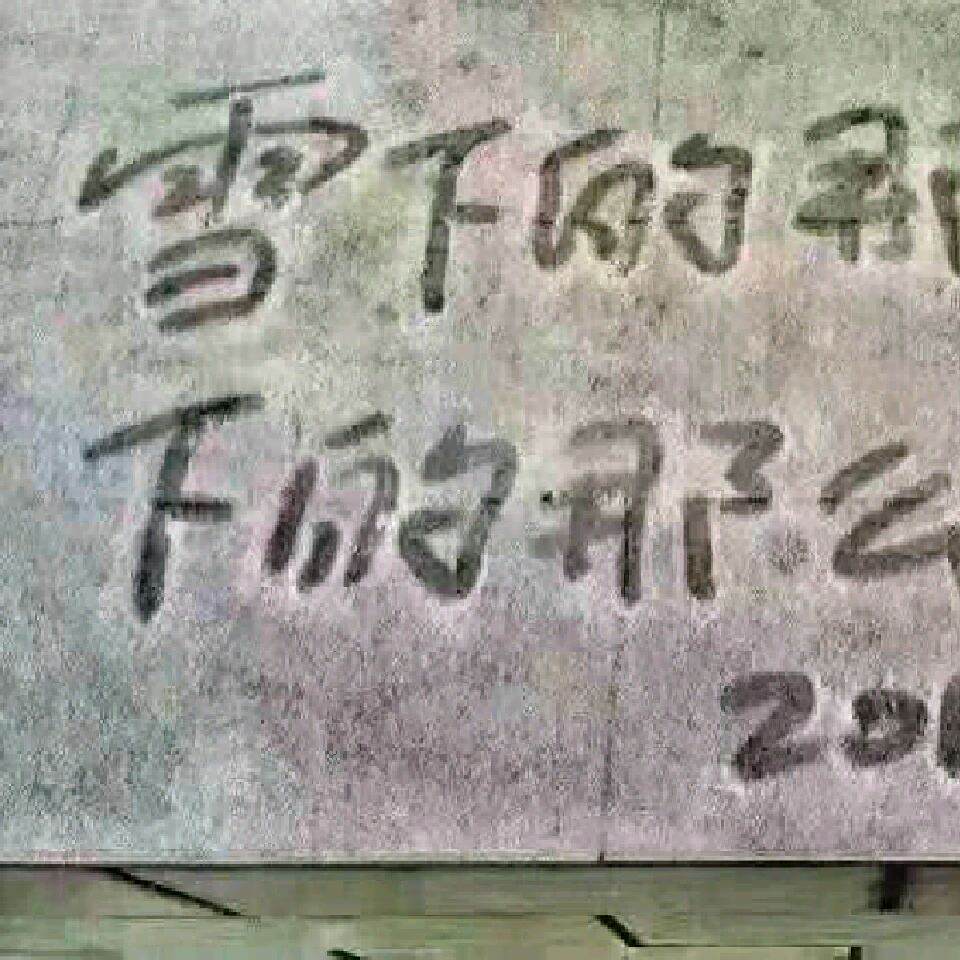 雪下的那
下的那么
201